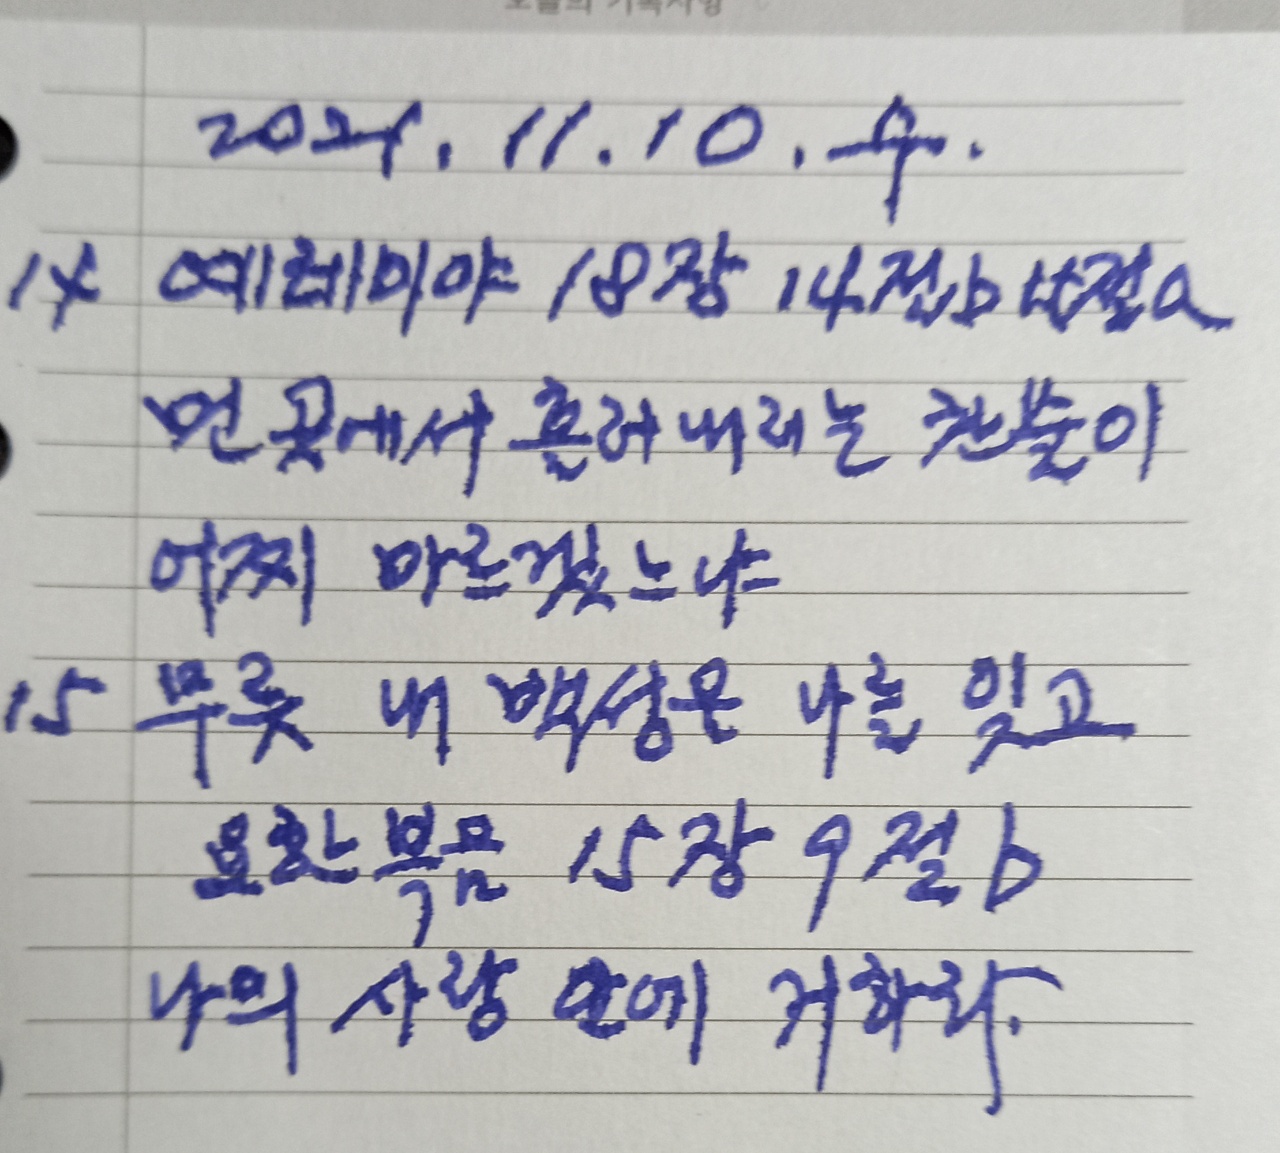 오늘의 기록사항
2021. 11. 10. 수.
14 예레미야 18장 14절b 15절a
먼 곳에서 흘러내리는 찬물이
어찌 마르겠느냐
15 무릇 내 백성은 나를 잊고
요한복음 15장 9절b
나의 사랑 안에 거하라.